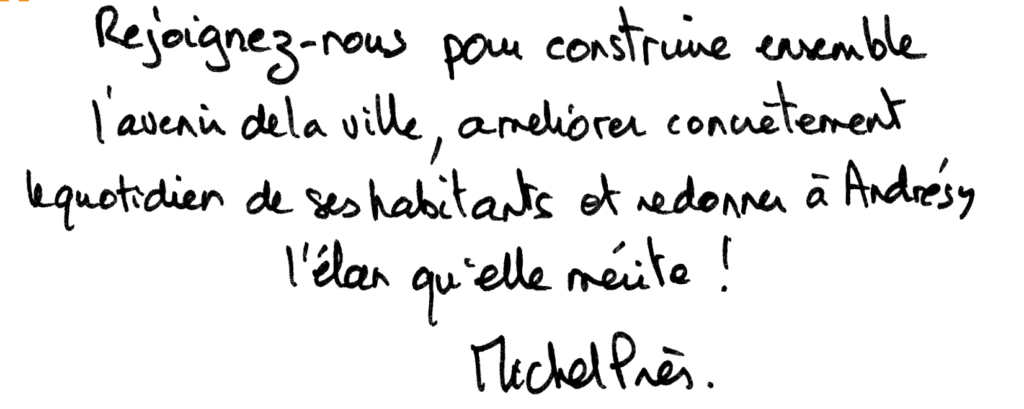 Rejoignez-nous pour construire ensemble
l'avenir de la ville, améliorer concrètement
le quotidien de ses habitants et redonner à Andrésy
l'élan qu'elle mérite !
Michel Près.